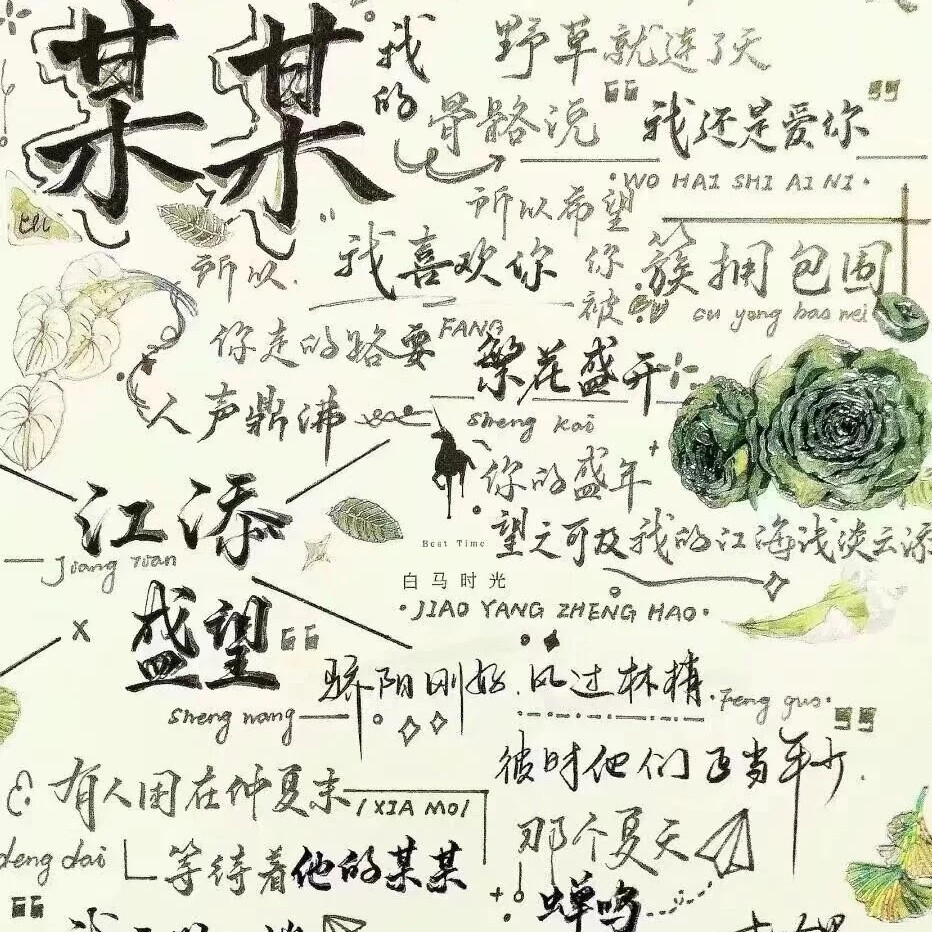 某某
我的
野草就连了天
骨骼说
“我还是爱你”
·WO HAI SHI AI NI·
所以希望
所以.
我喜欢你
你被
簇拥包围
cu yong bao wei
你走的路要
FANG
繁花盛开
人声鼎沸
sheng kai
你的盛年
江添
Jiang Tian
望之可及我的江海浅淡云添
Best Time
白马时光
·JIAO YANG ZHENG HAO·
x 盛望
sheng wang
“骄阳刚好.风过林梢.
Feng guo·”
彼时他们正当年少.
有人困在仲夏末
/XIA MO/
那个夏天
deng dai
等待着他的某某
蝉鸣